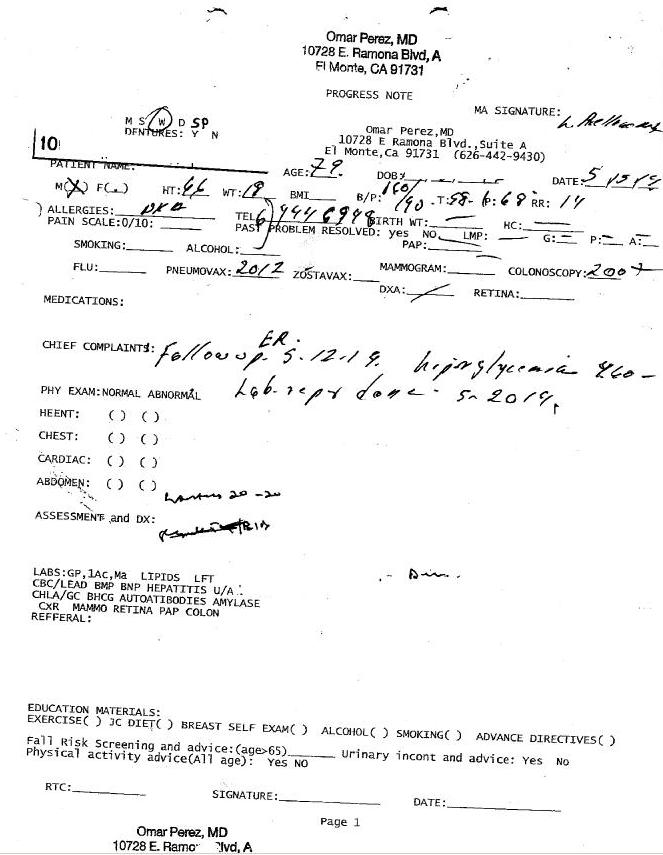 Omar Perez, MD
10728 E. Ramona Blvd, A
El Monte, CA 91731
PROGRESS NOTE
MA SIGNATURE:
M S W D SP
DENTURES: Y N
Omar Perez,MD
10728 E Ramona Blvd.,Suite A
El Monte,Ca 91731 (626-442-9430)
10
PATIENT NAME:
AGE: 79 DOB: DATE:
M(X) F( ) HT: 66 WT: BMI B/P: 160/90 T:98 P:68 RR: 14
ALLERGIES: TEL BIRTH WT: — HC: —
PAIN SCALE:0/10: PAST PROBLEM RESOLVED: yes NO LMP: — G: — P: — A: —
SMOKING: ALCOHOL: PAP:
FLU: PNEUMOVAX: 2012 ZOSTAVAX: MAMMOGRAM: COLONOSCOPY: 2007
DXA: RETINA:
MEDICATIONS:
CHIEF COMPLAINTS: Follow up ER. 5.12.19.
Lab done 5-2019.
PHY EXAM:NORMAL ABNORMAL
HEENT: ( ) ( )
CHEST: ( ) ( )
CARDIAC: ( ) ( )
ABDOMEN: ( ) ( )
Lantus 20-20
ASSESSMENT and DX:
LABS:GP,1Ac,Ma LIPIDS LFT
CBC/LEAD BMP BNP HEPATITIS U/A
CHLA/GC BHCG AUTOATIBODIES AMYLASE
CXR MAMMO RETINA PAP COLON
REFFERAL:
EDUCATION MATERIALS:
EXERCISE( ) JC DIET( ) BREAST SELF EXAM( ) ALCOHOL( ) SMOKING( ) ADVANCE DIRECTIVES( )
Fall Risk Screening and advice:(age>65) Urinary incont and advice: Yes No
Physical activity advice(All age): Yes NO
RTC: SIGNATURE: DATE:
Page 1
Omar Perez, MD
10728 E. Ramo Blvd, A